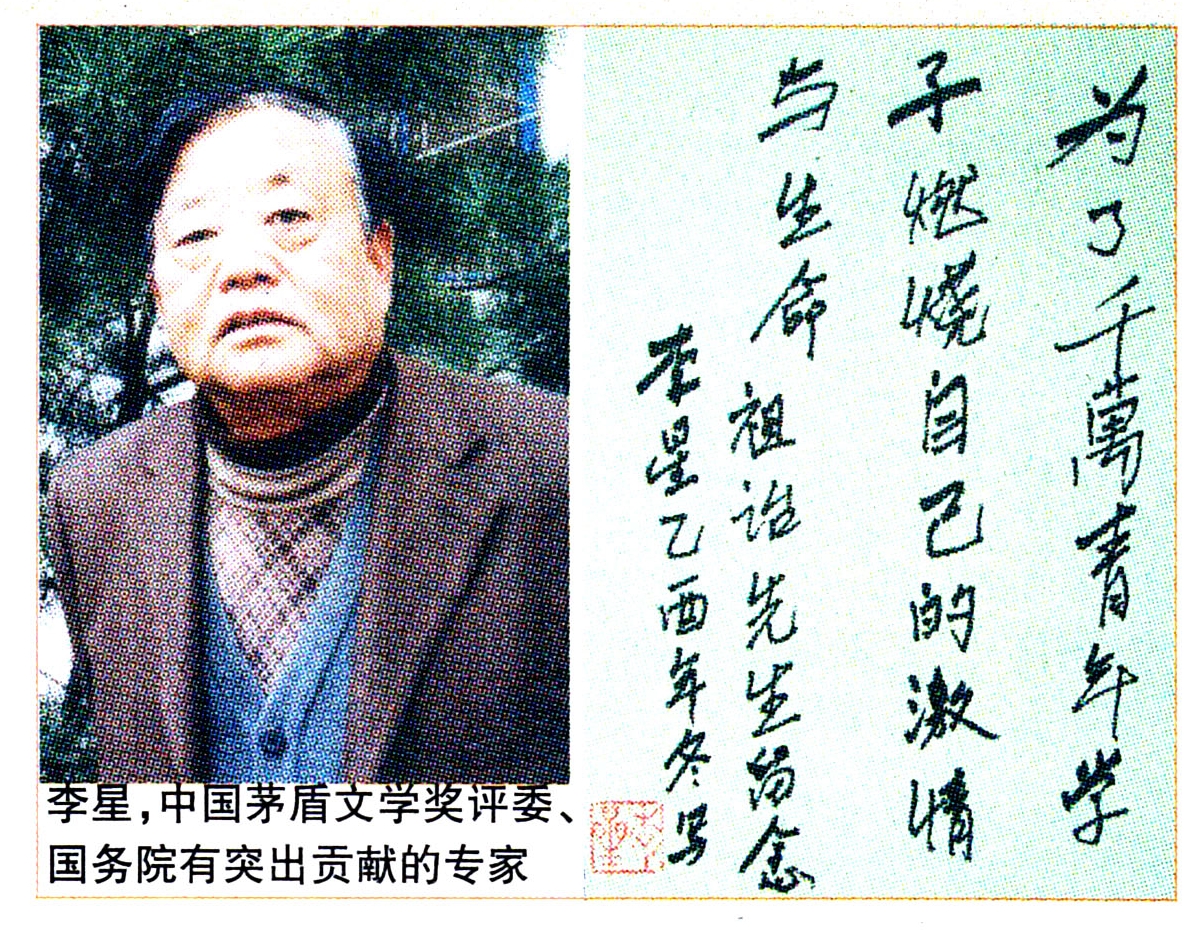 为了千萬青年学
子燃燒自己的激情
与生命
祖诒先生留念
李星乙酉年冬写
李星,中国茅盾文学奖评委、
国务院有突出贡献的专家